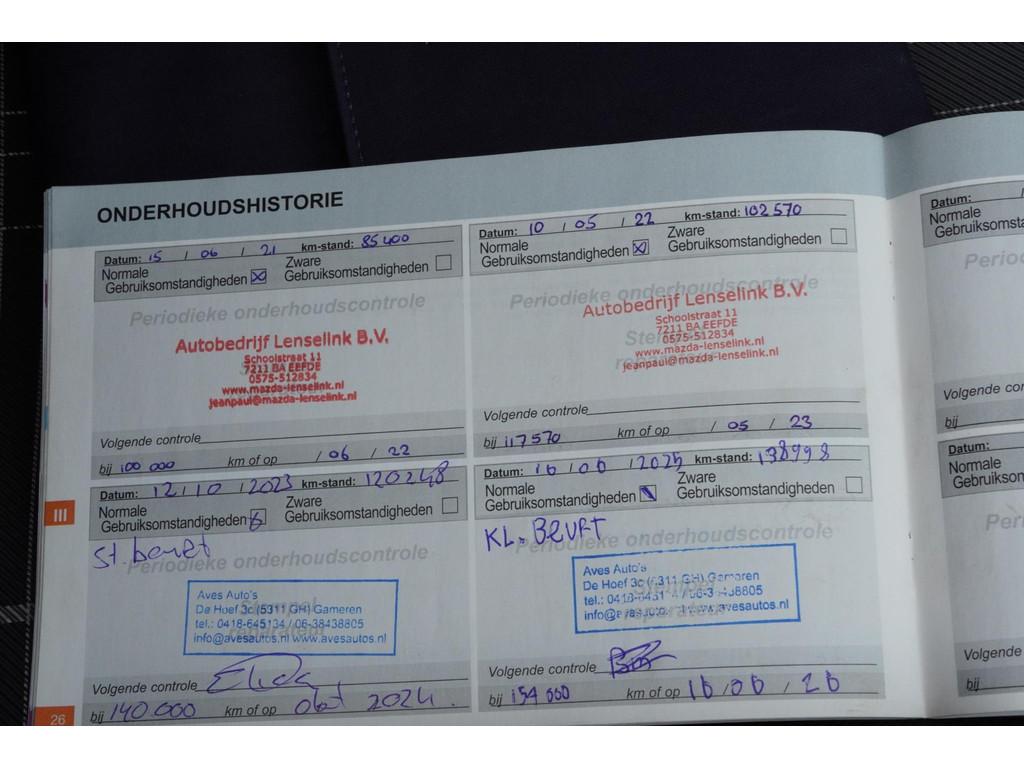 ONDERHOUDSHISTORIE
Datum: 15 / 06 / 21 km-stand: 85400
Normale
Gebruiksomstandigheden
Zware
Gebruiksomstandigheden
Periodieke onderhoudscontrole
Autobedrijf Lenselink B.V.
Schoolstraat 11
7211 BA EEFDE
0575-512834
www.mazda-lenselink.nl
jeanpaul@mazda-lenselink.nl
Volgende controle
bij 100 000 km of op / 06 / 22
Datum: 10 / 05 / 22 km-stand: 102570
Normale
Gebruiksomstandigheden
Zware
Gebruiksomstandigheden
Periodieke onderhoudscontrole
Autobedrijf Lenselink B.V.
Schoolstraat 11
7211 BA EEFDE
0575-512834
www.mazda-lenselink.nl
jeanpaul@mazda-lenselink.nl
Volgende controle
bij 117570 km of op / 05 / 23
Datum: 12 / 10 / 2023 km-stand: 120248
Normale
Gebruiksomstandigheden
Zware
Gebruiksomstandigheden
Periodieke onderhoudscontrole
Stempel
reparateur
Aves Auto's
De Hoef 3c (5311 GH) Gameren
tel.: 0418-645134 / 06-38438805
info@avesautos.nl www.avesautos.nl
Volgende controle
bij 140.000 km of op okt 2024.
Datum: 16 / 06 / 2025 km-stand: 138998
Normale
Gebruiksomstandigheden
Zware
Gebruiksomstandigheden
KL. BEURT
Periodieke onderhoudscontrole
Stempel
reparateur
Aves Auto's
De Hoef 3c (5311 GH) Gameren
www.avesautos.nl
Volgende controle
bij 154 000 km of op 16 / 06 / 26
III
26
Datum:
Normale
Volgende
bij
Datum:
Normale
Volgende
bij